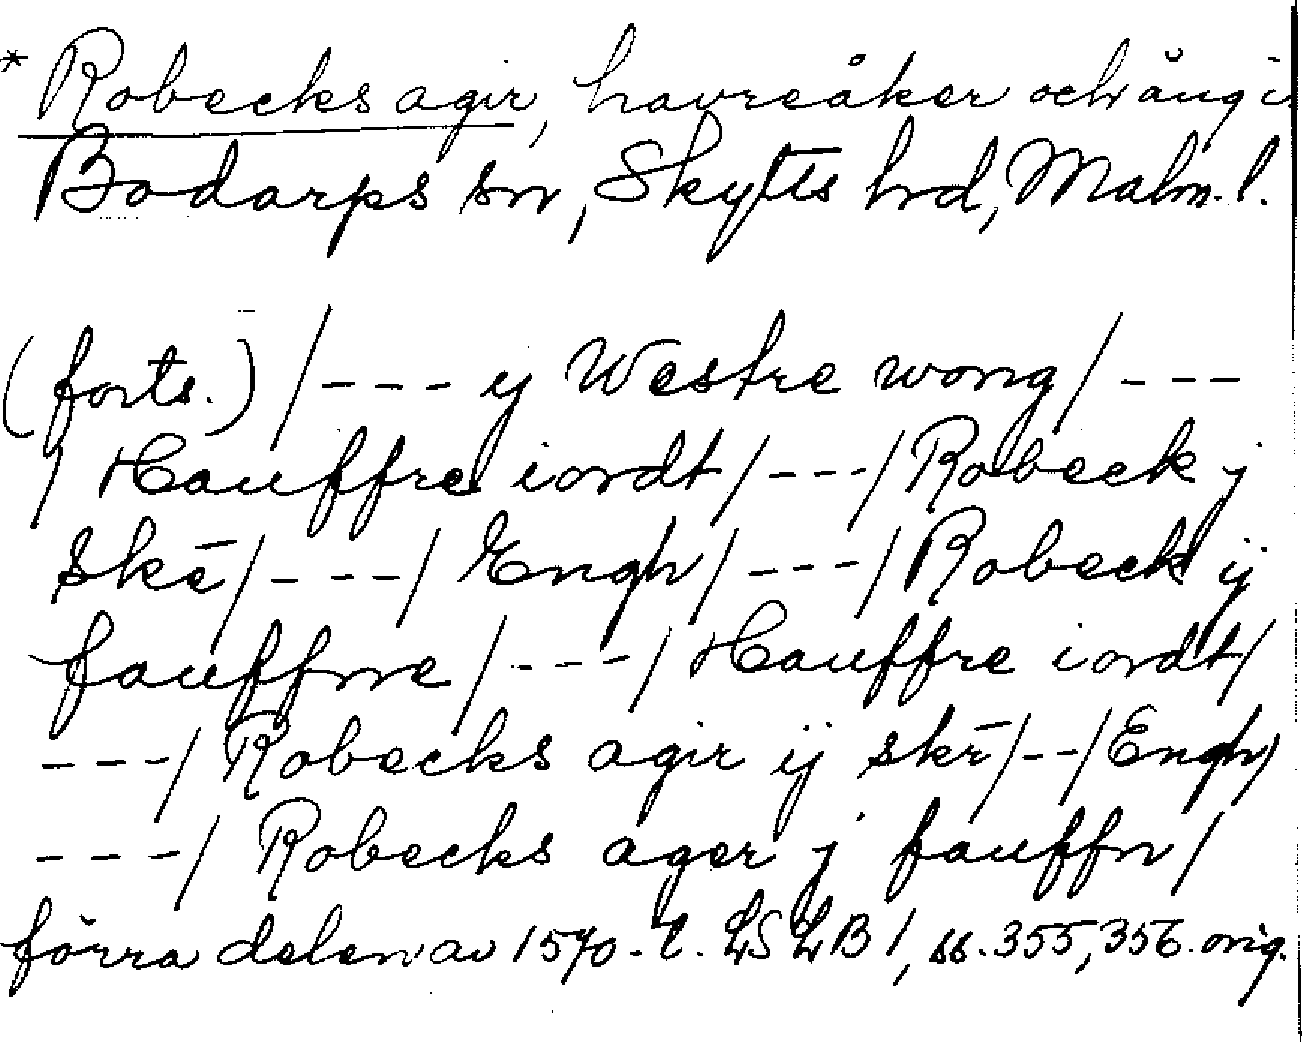 * Robecks agir, havreåker och äng i
Bodarps sn, Skytts hrd, Malm. l.
(forts.) /--- y Westre wong/---
/ Hauffre iordt/---/Robeck j
skē/---/ Engh/---/Robeck ij
fauffnne/---/Hauffre iordt/
---/Robecks agir ij skr̄/--/Engh/
---/ Robecks ager j fauffn/
förra delen av 1570-t. LSLB 1, ss. 355, 356. orig.